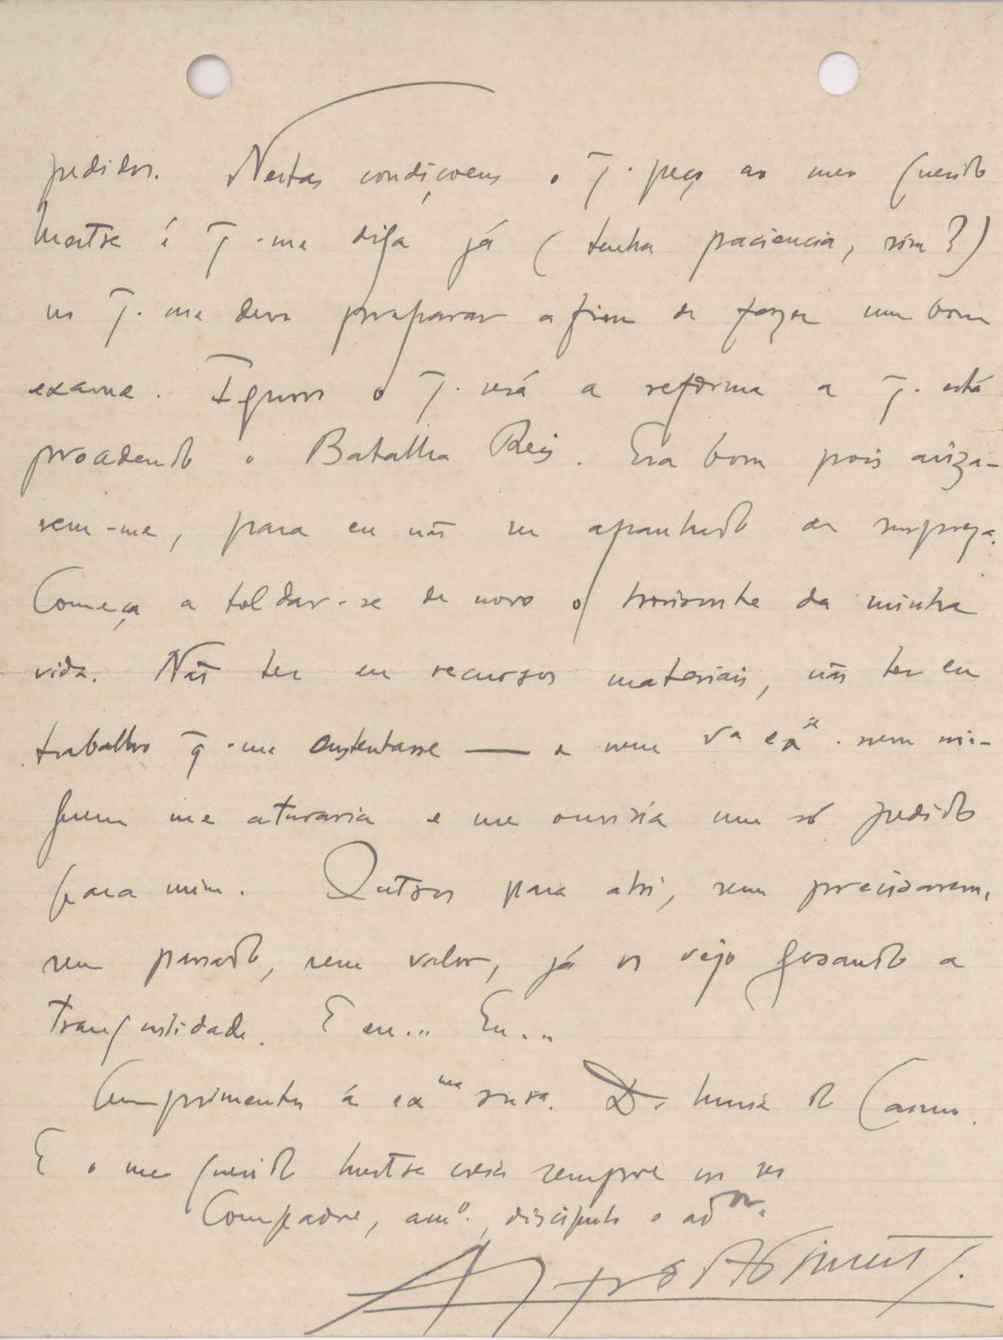 pedidos. Nestas condiçoens o q̄. peço ao meu querido
Mestre é q̄.-me diga já (tenha paciencia, sim?)
no q̄. me devo preparar afim de fazer um bom
exame. Ignoro o q̄. será a reforma a q̄. está
procedendo o Batalha Reis. Era bom pois aviza-
rem-me, para eu não ser apanhado de surpreza.
Começa a toldar-se de novo o horisonte da minha
vida. Não ter eu recursos materiais, não ter eu
trabalho q̄.-me sustentasse — e nem va exa. nem nin-
guem me aturaria e me ouviria um só pedido
para mim. Outros para ahi, sem precisarem,
sem passado, sem valor, já os vejo gosando a
tranquilidade. E eu... Eu...
Cumprimentos á exma snra. D. do Carmo.
E o meu querido Mestre creia sempre no seu
Compadre, amo., discipulo e ador.
Pimenta.